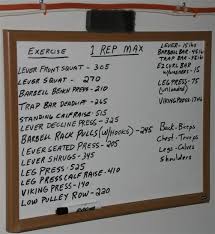 EXERCISE 1 REP MAX
LEVER FRONT SQUAT - 305
LEVER SQUAT - 270
BARBELL BENCH PRESS - 210
TRAP BAR DEADLIFT - 265
STANDING CALF RAISE - 515
LEVER DECLINE PRESS - 325
BARBELL RACK PULLS (W/HOOKS) - 245
LEVER SEATED PRESS - 205
LEVER SHRUGS - 345
LEG PRESS - 525
LEG PRESS (CALF RAISE) - 410
VIKING PRESS - 140
LOW PULLEY ROW - 220
LEVER - 15 lbs
BARBELL BAR - 45 lbs
TRAP BAR -
EZ CURL BAR
W/ - 15
LEG PRESS - 75
(unloaded)
VIKING PRESS -
Back - Biceps
Chest - Triceps
Legs - Calves
Shoulders